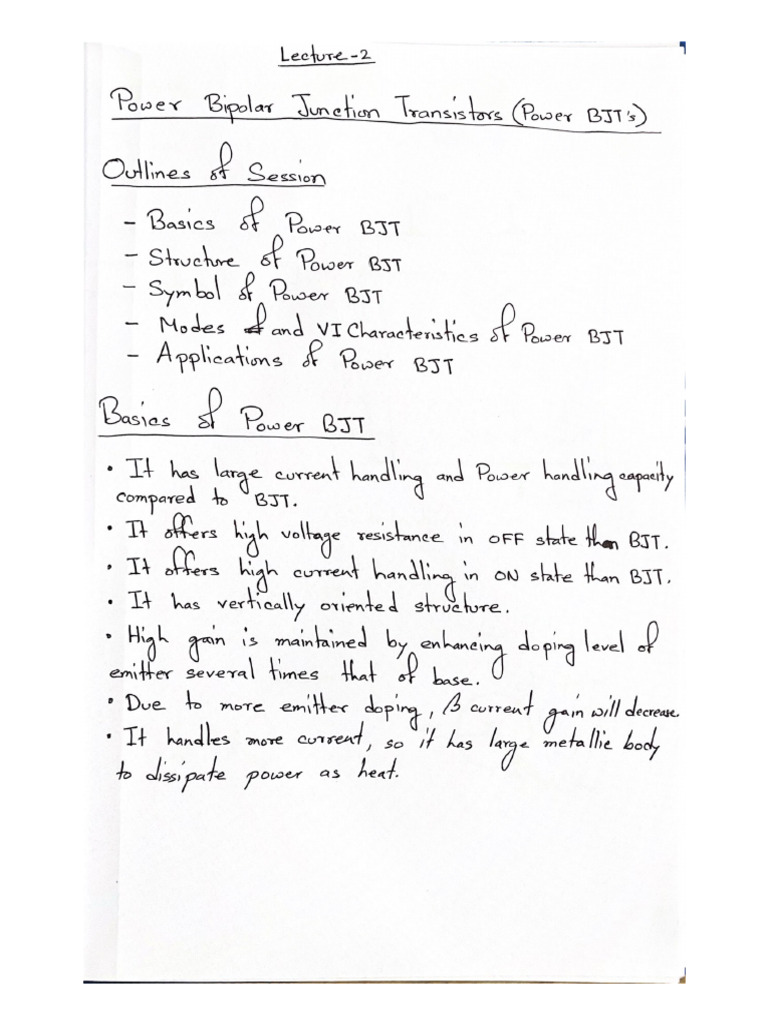 Lecture-2
Power Bipolar Junction Transistors (Power BJT's)
Outlines of Session
- Basics of Power BJT
- Structure of Power BJT
- Symbol of Power BJT
- Modes and VI Characteristics of Power BJT
- Applications of Power BJT
Basics of Power BJT
• It has large current handling and Power handling capacity
compared to BJT.
• It offers high voltage resistance in OFF state than BJT.
• It offers high current handling in ON state than BJT.
• It has vertically oriented structure.
• High gain is maintained by enhancing doping level of
emitter several times that of base.
• Due to more emitter doping, β current gain will decrease.
• It handles more current, so it has large metallic body
to dissipate power as heat.